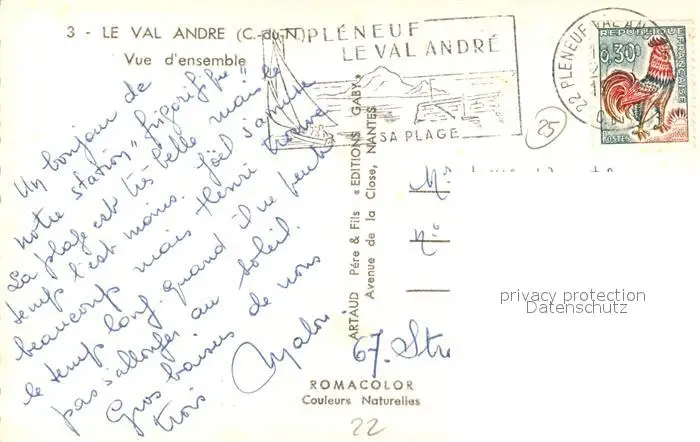 3 - LE VAL ANDRE (C.-du-N.)
Vue d'ensemble
PLÉNEUF
LE VAL ANDRÉ
SA PLAGE
22 PLENEUF VAL ANDRE
REPUBLIQUE FRANÇAISE
0,30
POSTES
25
Un bonjour de
notre station "frigorifique"
La plage est très belle mais le
temps l'est moins. Joël s'amuse
beaucoup mais Henri trouve
le temps long quand il ne peut
pas s'allonger au soleil.
Gros baisers de nous
trois
ARTAUD Père & Fils «EDITIONS GABY»
Avenue de la Close, NANTES
Mr
No
67. Str
privacy protection
Datenschutz
ROMACOLOR
Couleurs Naturelles
22